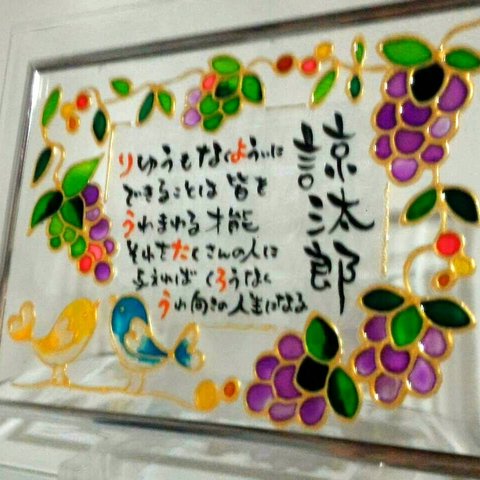 諒汰郎
りゆうもなくよういに
できることは 皆を
才能
それをたくさんの人に
与えれば くろうなく
うわ向きの人生になる